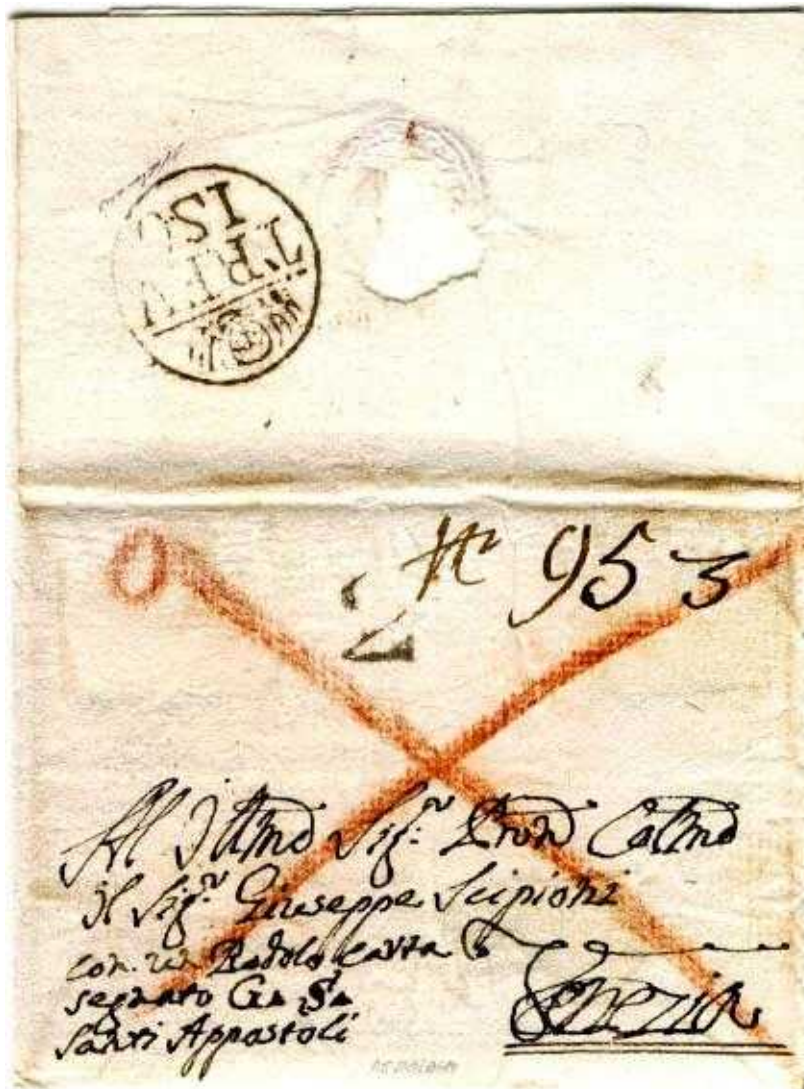 TREV
ISO
No 953
2
Al Illmo Sigr Pron Colmo
Il Sigr Giuseppe Scipioni
con un Rodolo carta
segnato G. S.
Santi Appostoli
Venezia